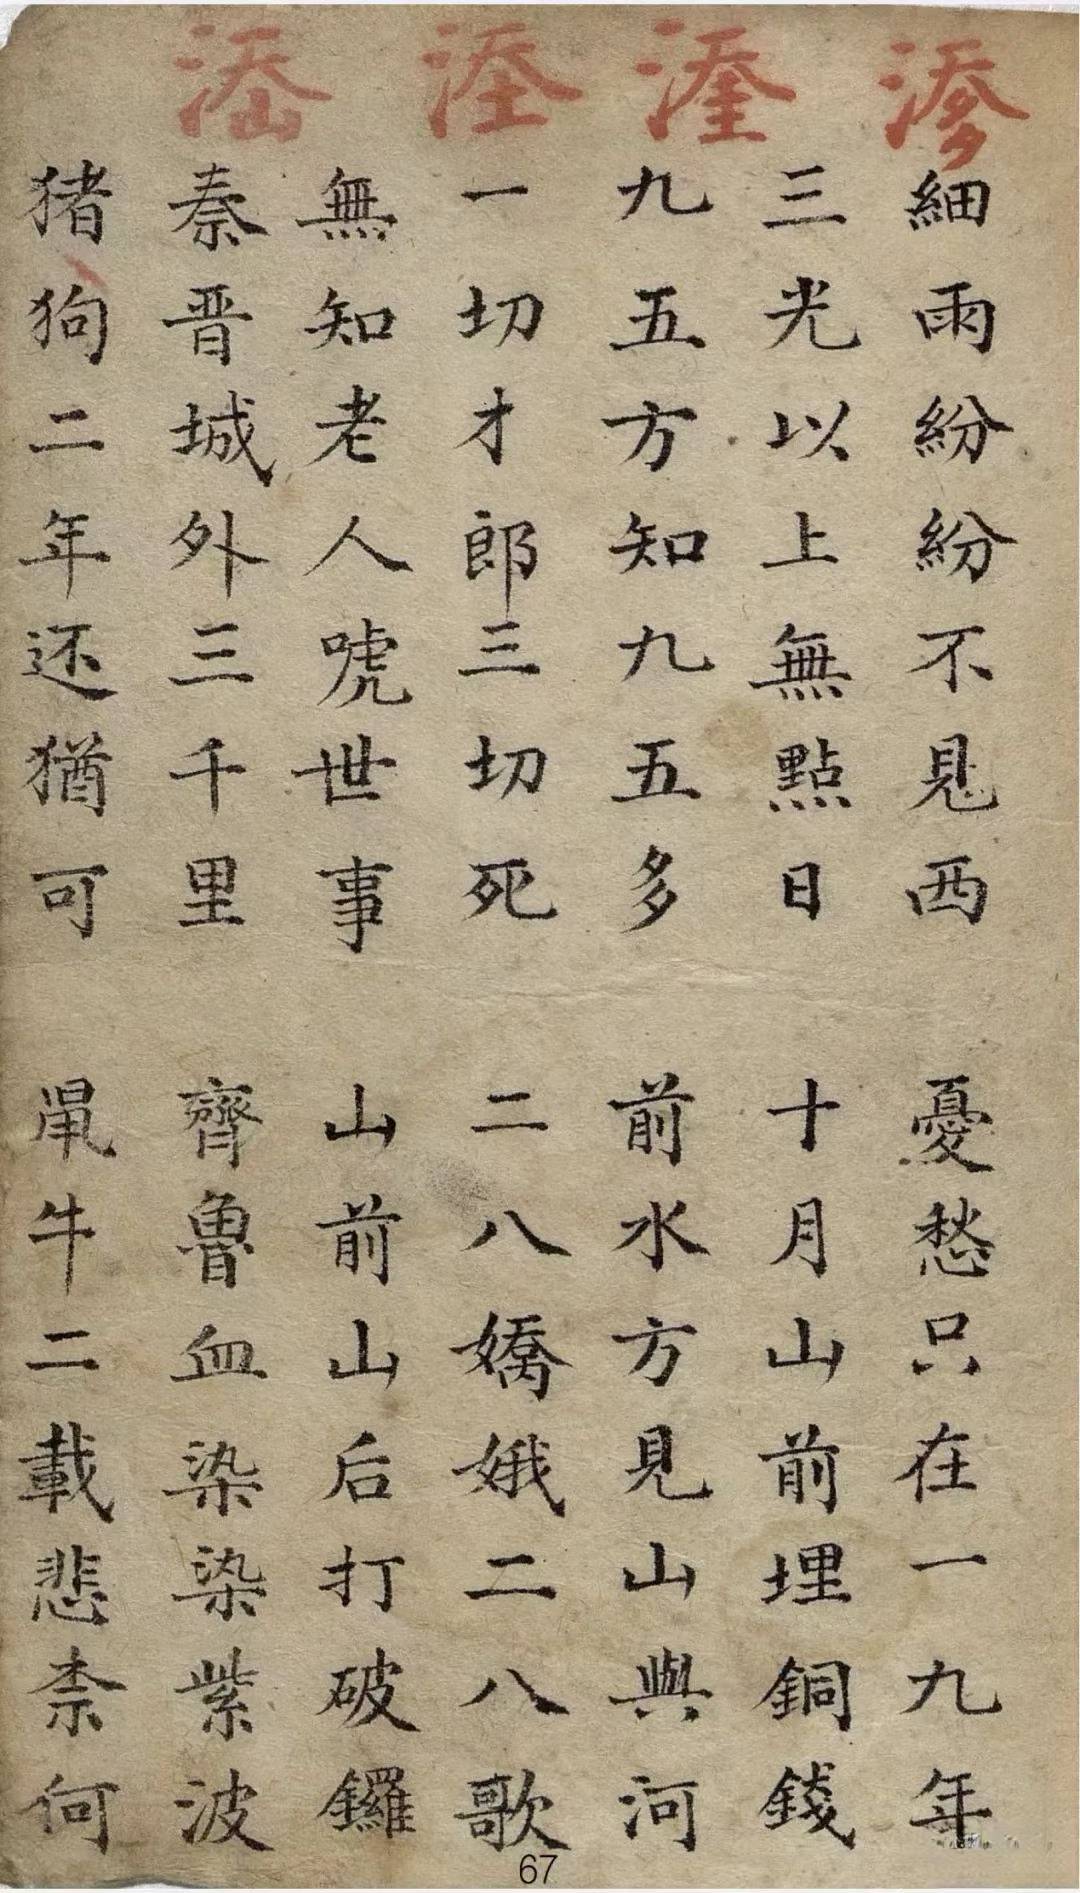 細雨紛紛不見西 憂愁只在一九年
三光以上無點日 十月山前埋銅錢
九五方知九五多 前水方見山與河
一切才郎三切死 二八嬌娥二八歌
無知老人唬世事 山前山后打破鑼
秦晋城外三千里 齊魯血染染紫波
猪狗二年还猶可 鼠牛二載悲柰何
67